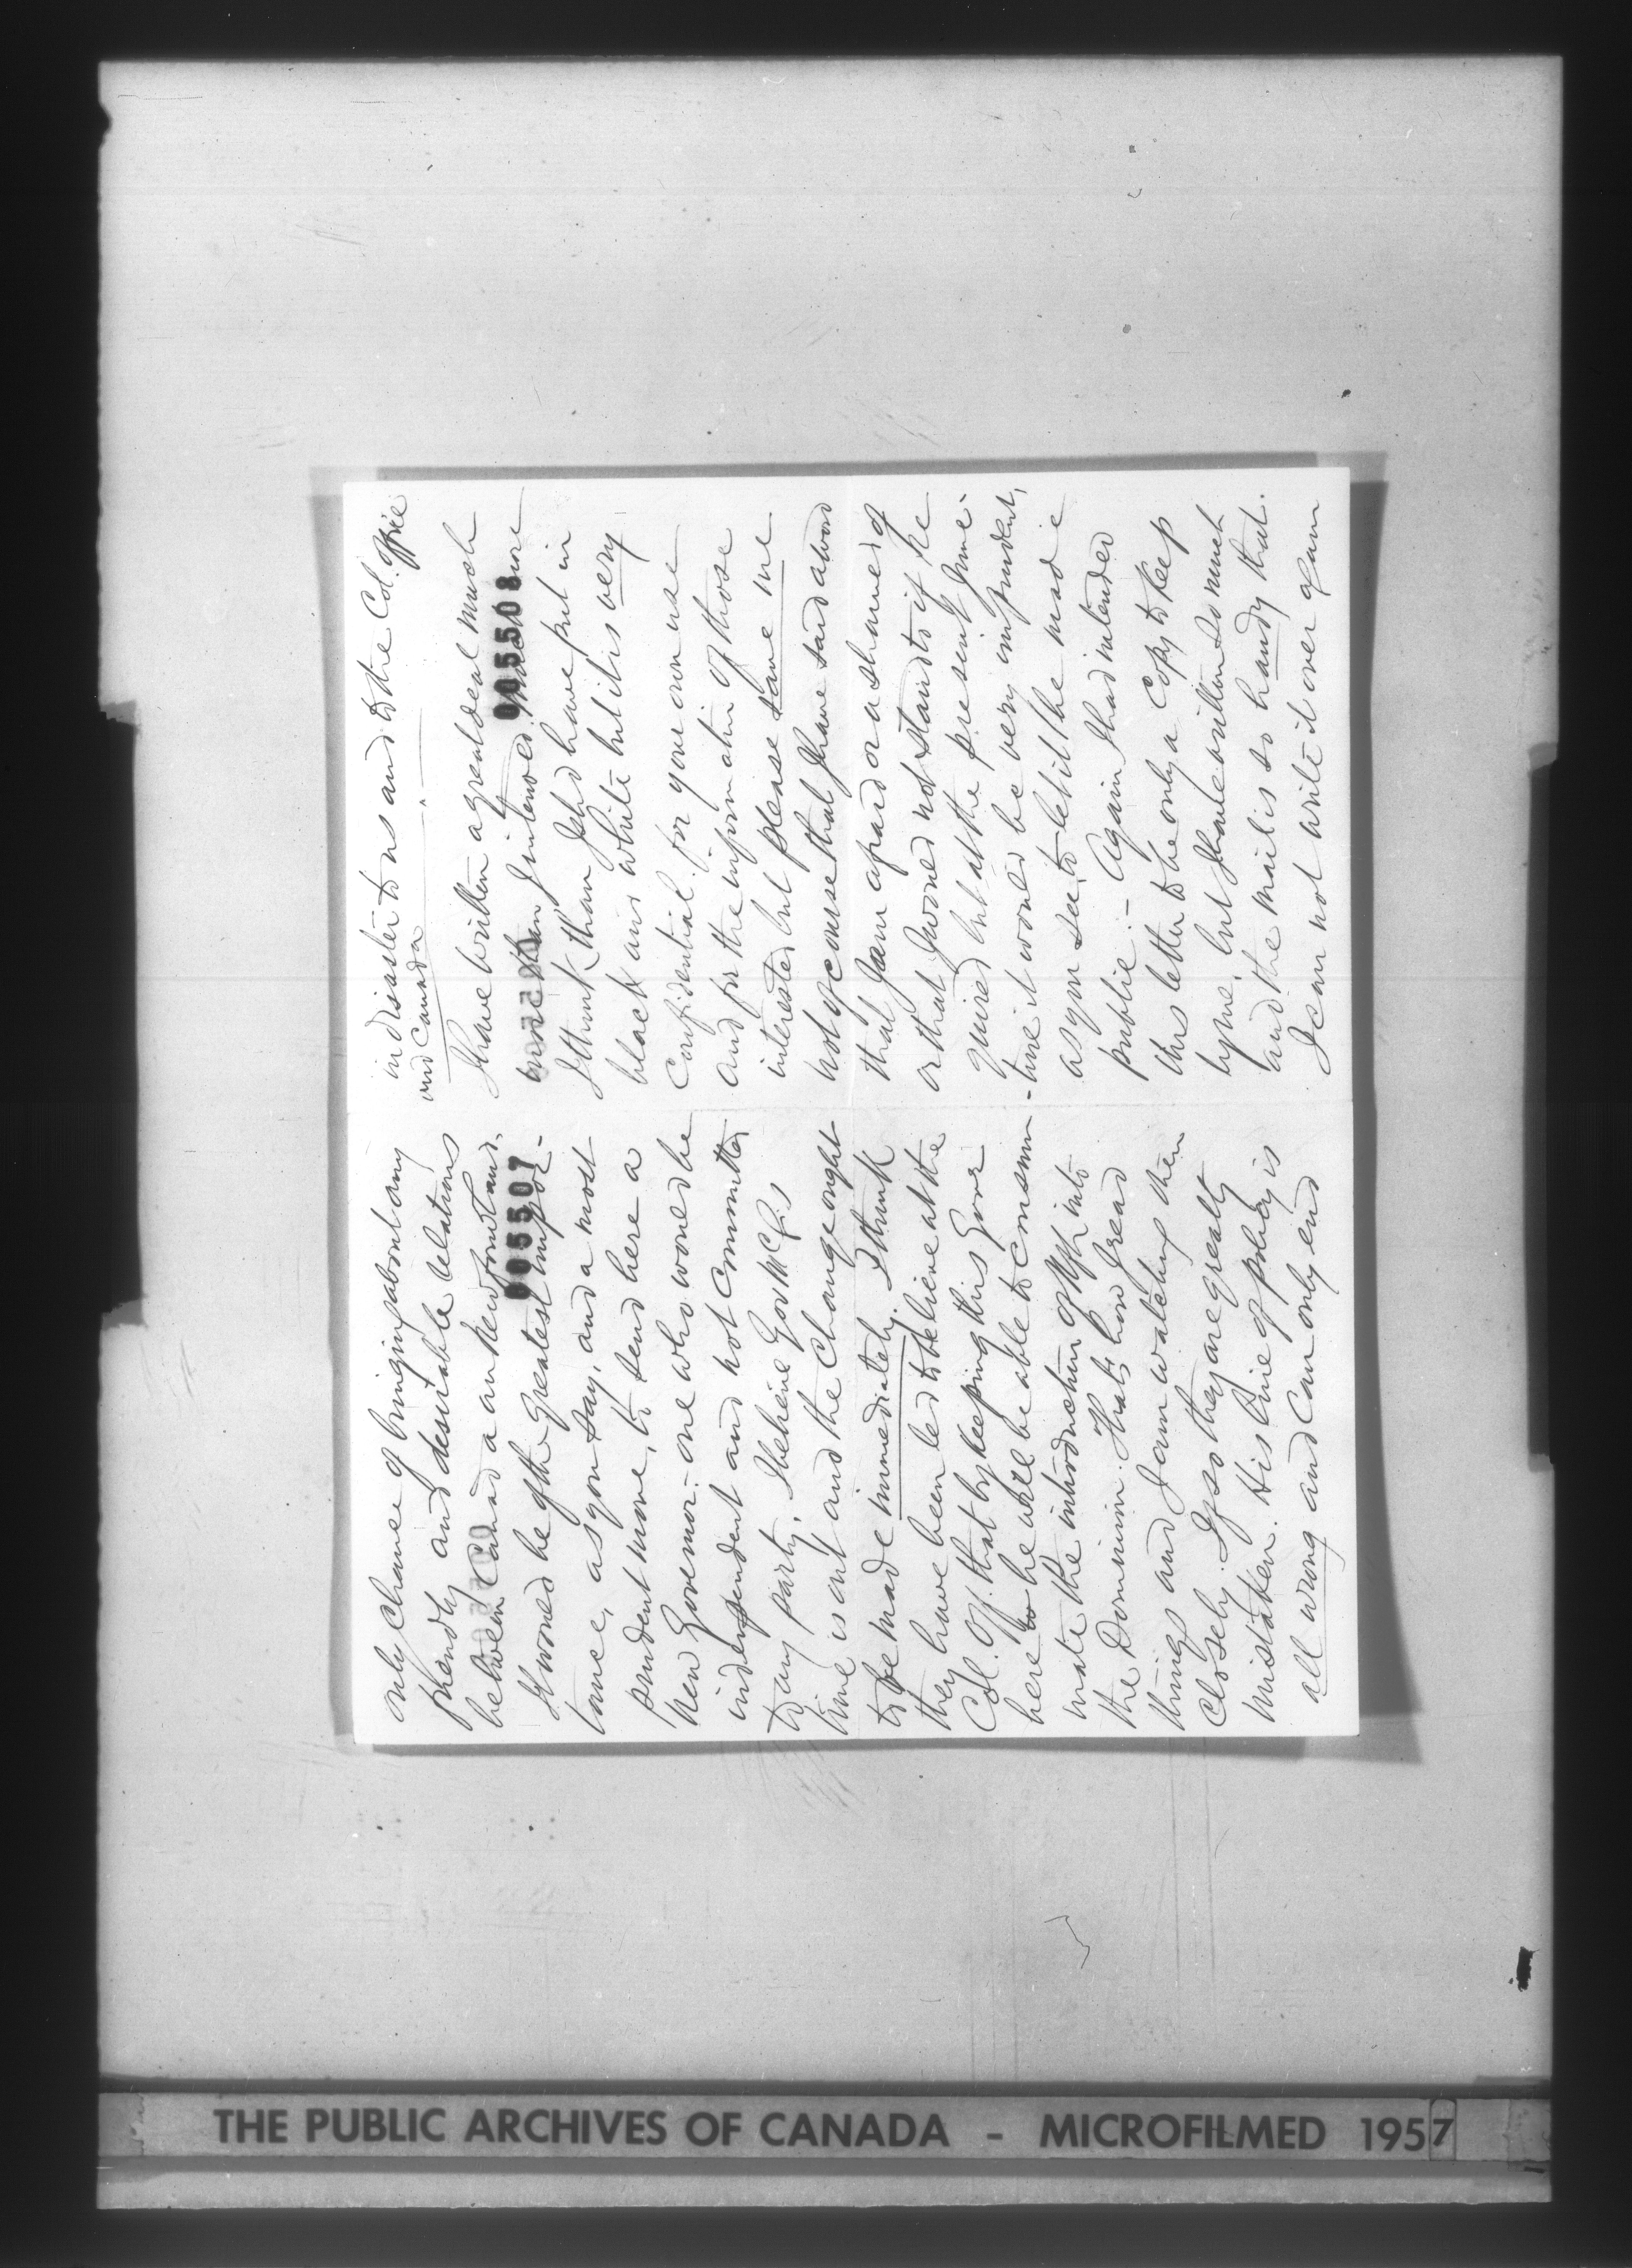 only chance of bringing about any
friendly and desirable relations
between Canada and Newfoundland.
005507
It would be of the greatest impor-
tance, as you say, and a most
prudent move, to send here a
new Governor - one who would be
independent and not committed
to any party. I believe Gov McC's
time is out and the change ought
to be made immediately. I think
they have been led to believe at the
Col. Off. that by keeping this Govr
here he will be able to consum-
mate the introduction of Nfld into
the Dominion. That's how I read
things and I am watching them
closely. If so they are greatly
mistaken. His line of policy is
all wrong and can only end
in disaster to us and to the Col. Office
and Canada
I have written a great deal much
005508
more than I intended much more
I think than I shd have put in
black and white but it is very
confidential for your own use
and for the information of those
interested but please save me
not of course that I have said a word
that I am afraid or ashamed of
or that I would not stand to if re
quired but at the present junc-
-ture it would be very imprudent,
as you see, to let it be made
public. - Again I had intended
this letter to be only a copy to keep
by me, but I have written so much
and the mail is so handy that
I can not write it over again
THE PUBLIC ARCHIVES OF CANADA - MICROFILMED 1957